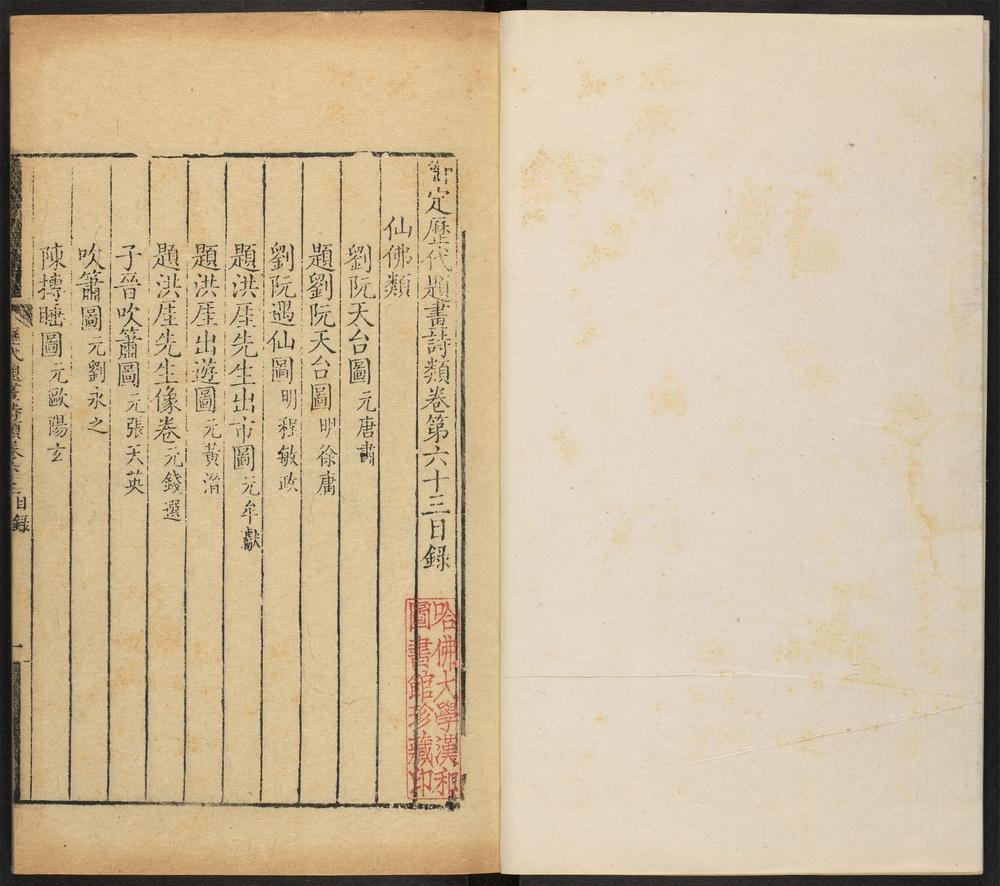 定歷代題畫詩類卷第六十三目錄
仙佛類
劉阮天台圖 元唐肅
題劉阮天台圖 明徐庸
劉阮遇仙圖 明程敏政
題洪厓先生出市圖 元牟巘
題洪厓出遊圖 元黃溍
題洪厓先生像卷 元錢選
子晉吹簫圖 元張天英
吹簫圖 元劉永之
陳摶睡圖 元歐陽玄
歷代題畫詩類卷六十三目錄
一
哈佛大學漢和
圖書館珍藏印